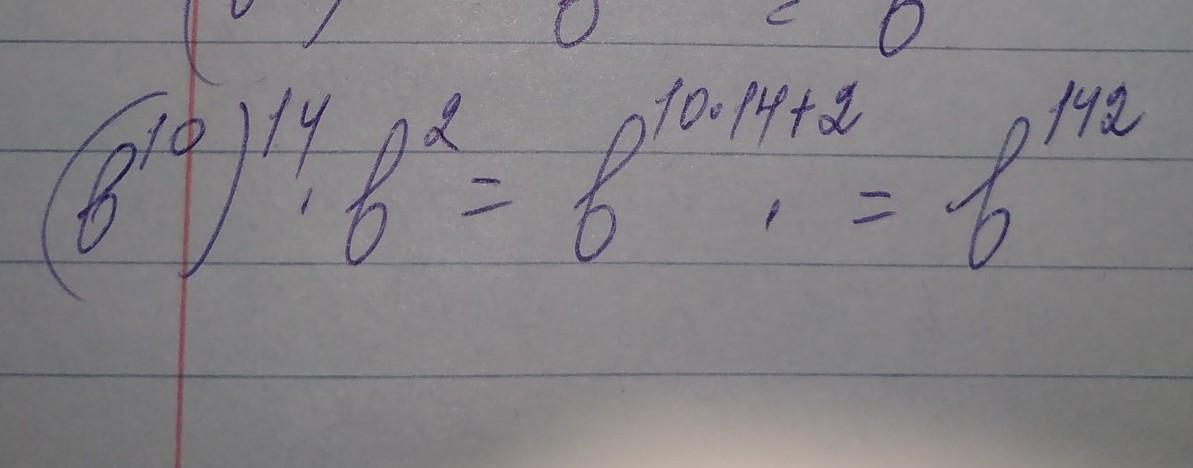 (b¹⁰)¹⁴ · b² = b¹⁰·¹⁴⁺² · = b¹⁴²